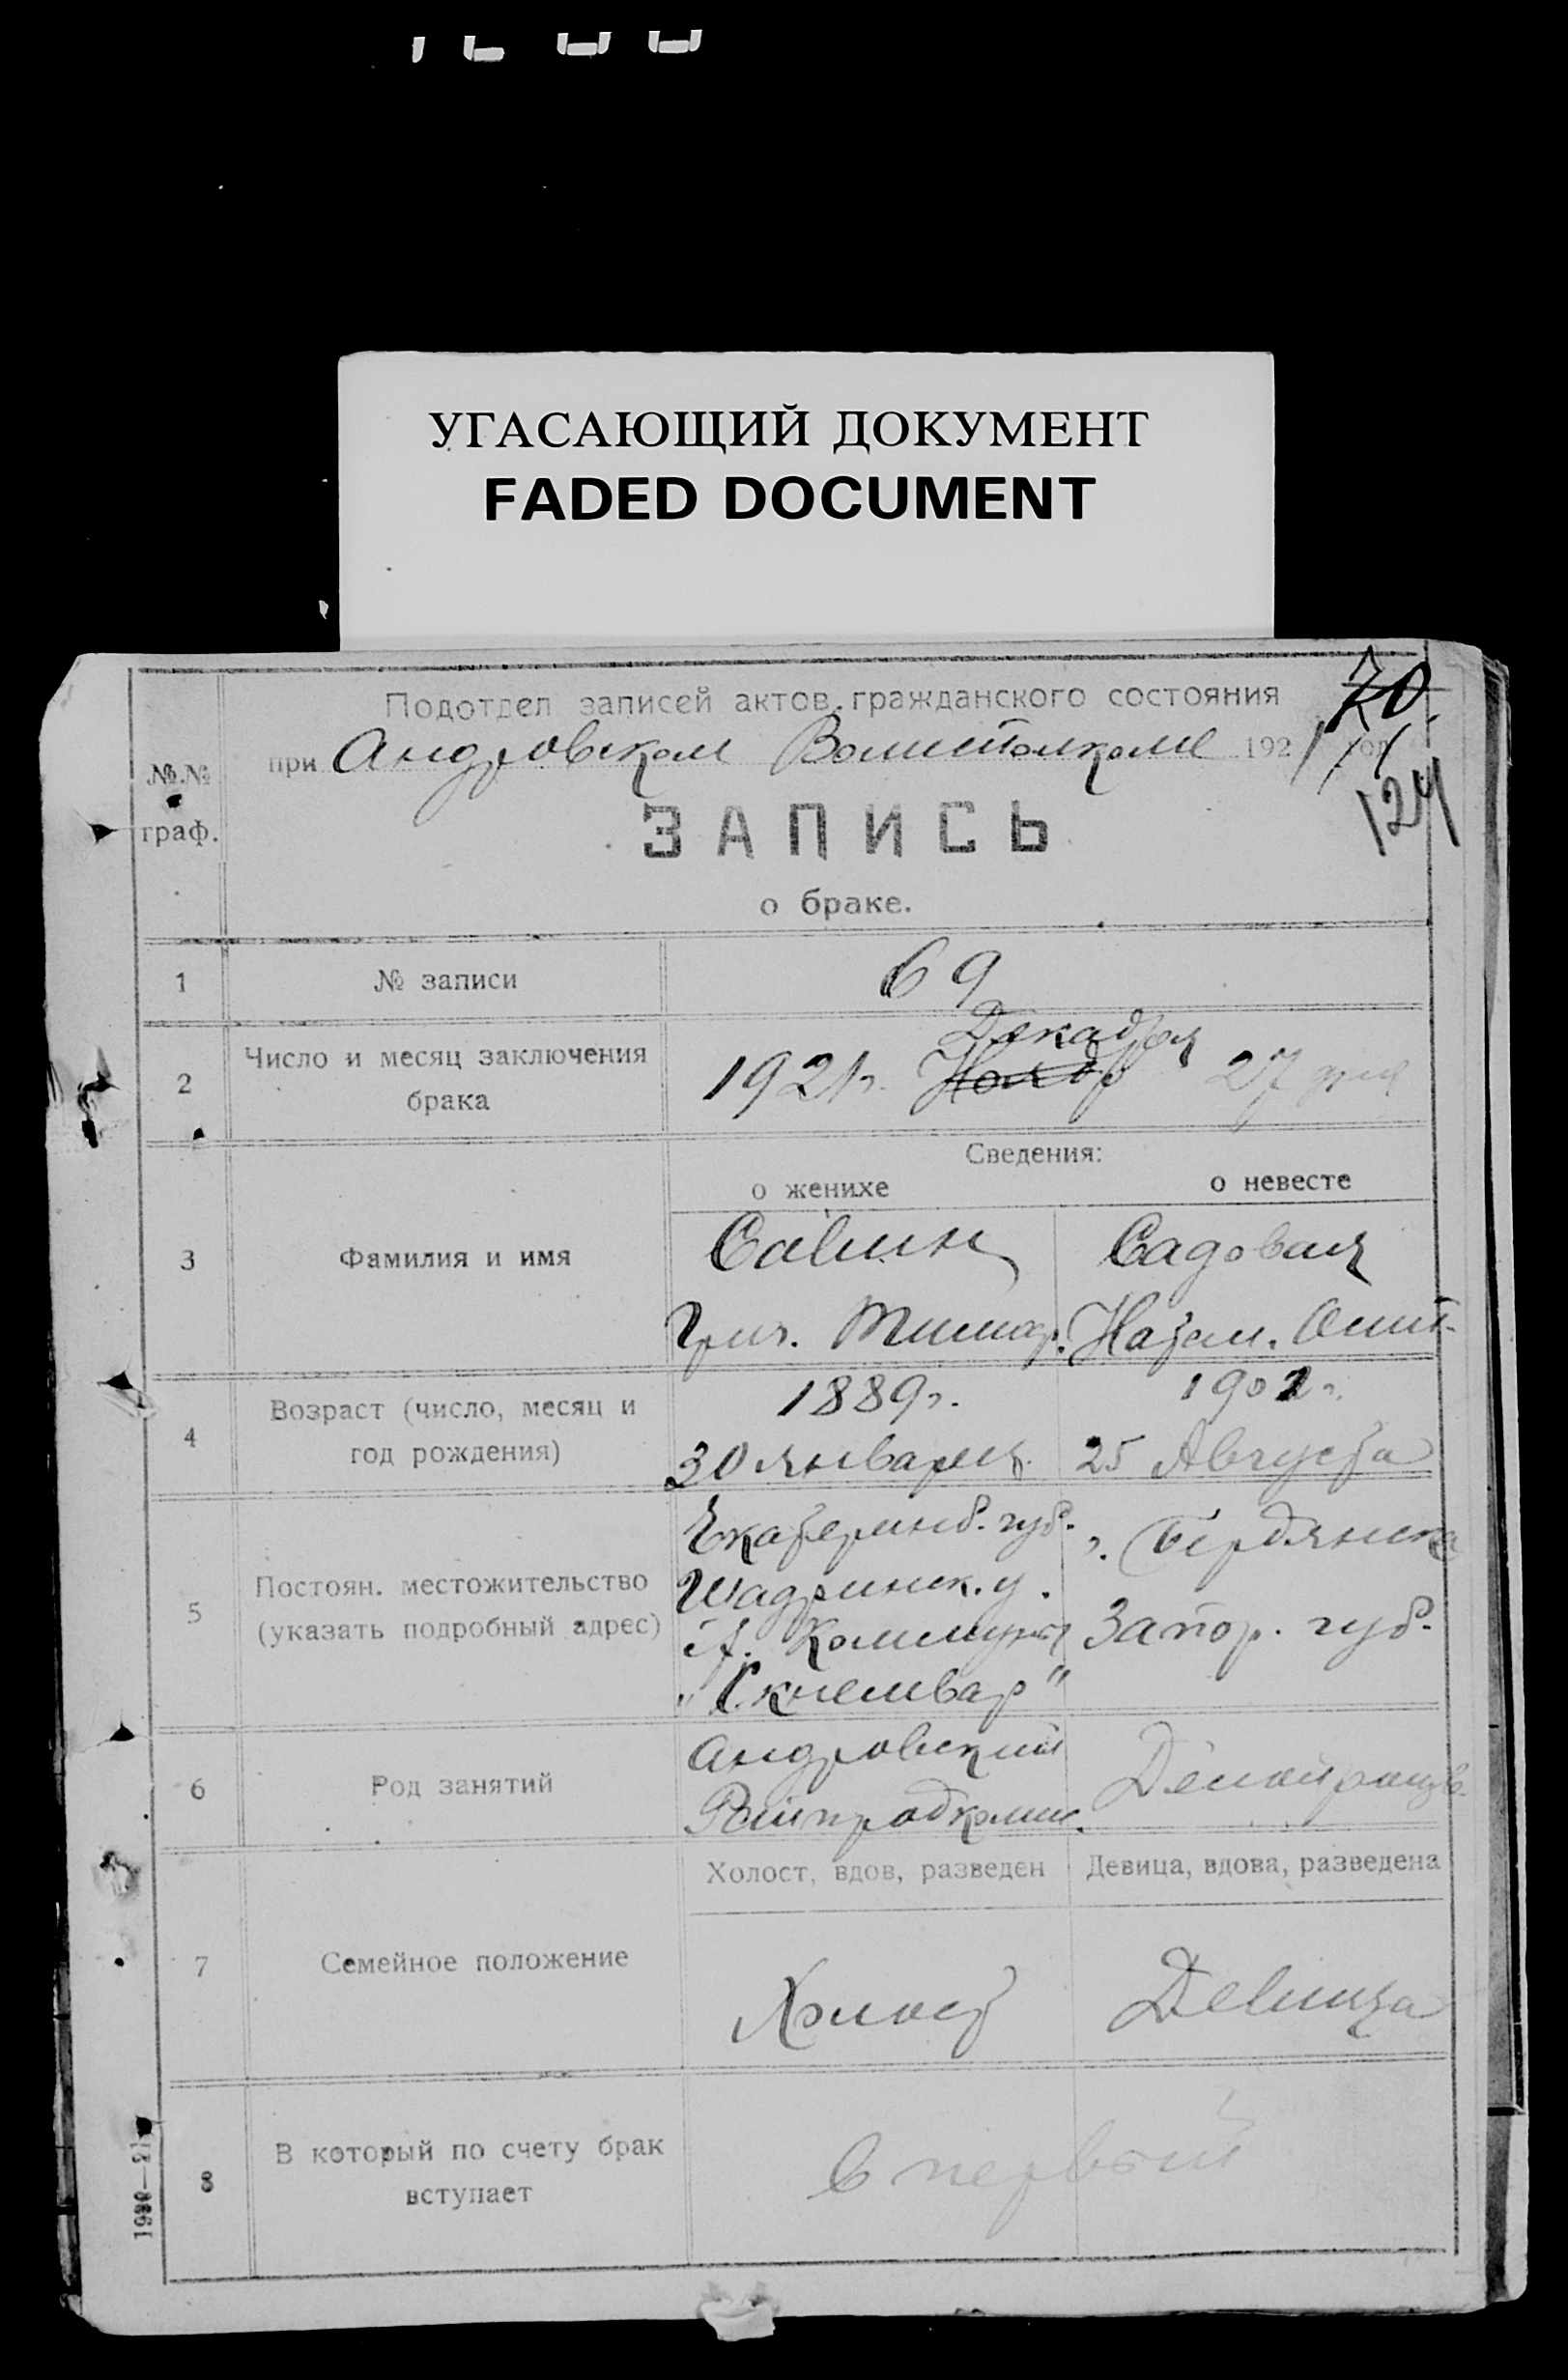 УГАСАЮЩИЙ ДОКУМЕНТ
FADED DOCUMENT
70
Подотдел записей актов гражданского состояния
при Андровском Волисполкоме 1921 год
124
№№ граф.
ЗАПИСЬ
о браке.
1 № записи 69
2 Число и месяц заключения брака
Декабря
1921г.Ноябр 27 дня
Сведения:
о женихе о невесте
3 Фамилия и имя
Савин Садовая
Григ. Тимоф. Назам. Осип.
4 Возраст (число, месяц и год рождения)
1889г. 1902г.
30 января 25 Августа
5 Постоян. местожительство (указать подробный адрес)
Екатеринб. губ. г. Бердянска
Шадринск. у. Запор. губ.
Коммуна
6 Род занятий
Андровский
Райпродком.
Холост, вдов, разведен Девица, вдова, разведена
7 Семейное положение
Холост Девица
8 В который по счету брак вступает
в первый
1990—21